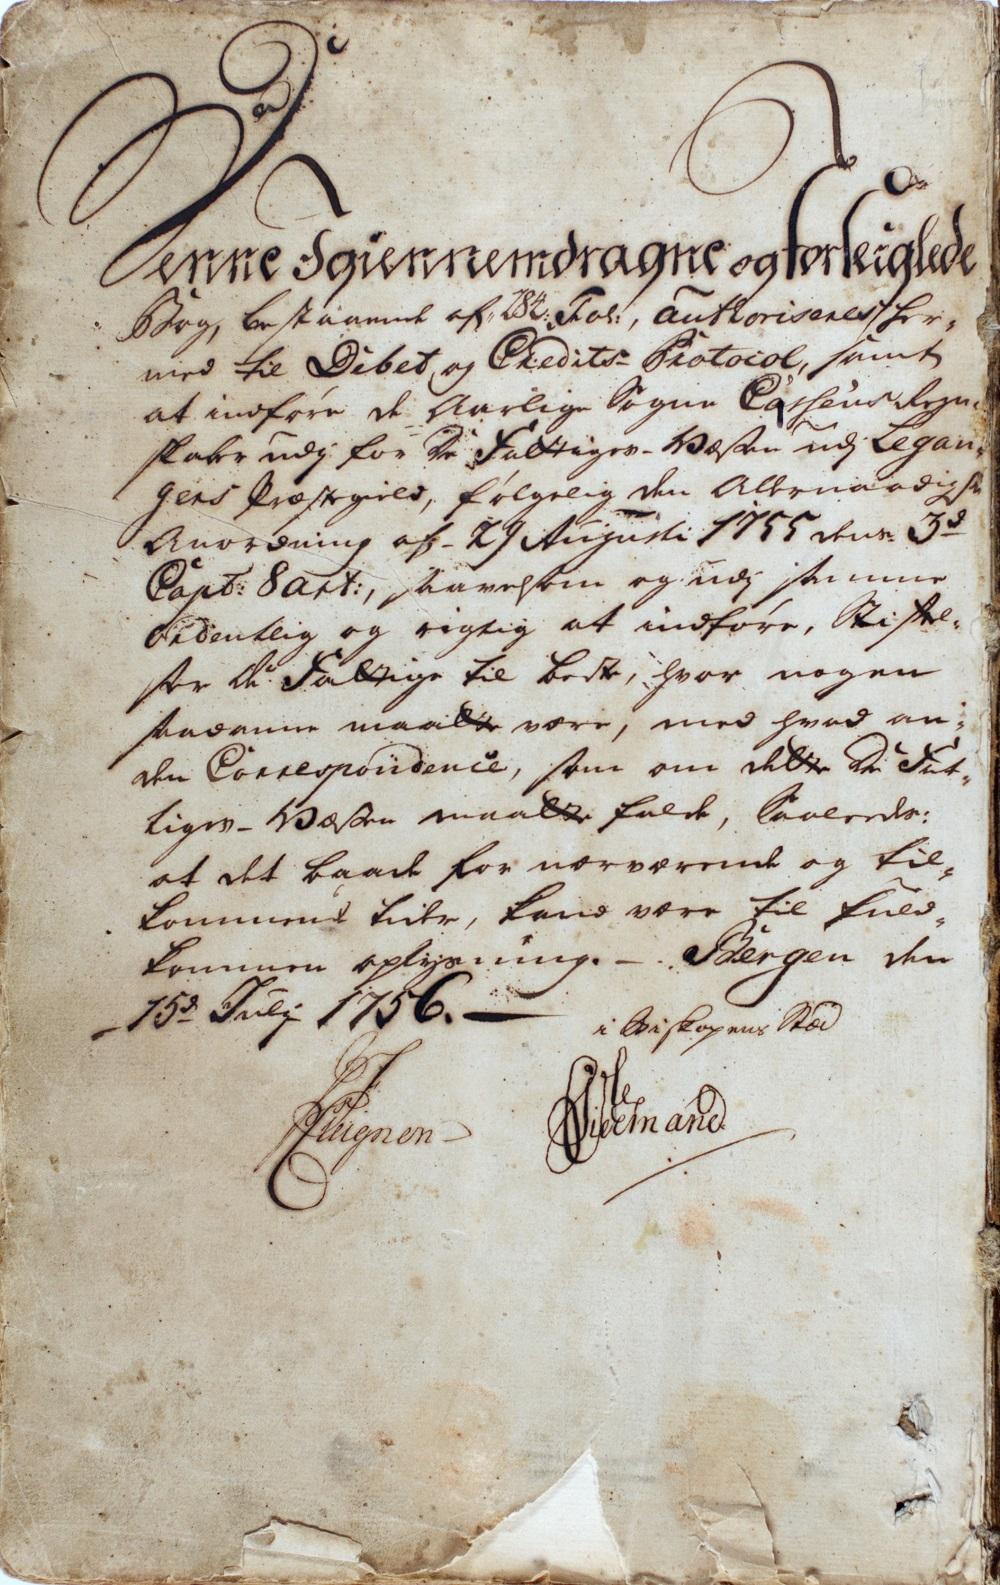 Denne Igiennemdragne og forseiglede
Bog, bestaaende af 284: Fol:, authoriseres her-
med til Debet og Credits-Protocol, samt
at indføre de Aarlige Sogne Cassens Regn-
skaber udj for De Fattiges-Væsen udj Legan-
gers Præstegield, følgelig den Allernaadigste
Anordning af 29 Augusti 1755 dens 3d
Capt: 8 art:, saavelsom og udj samme
Ordentlig og rigtig at indføre, Stiftel-
ser De Fattige til beste, hvor nogen
saadanne maatte være, med hvad an-
den Correspondence, som om dette De Fat-
tiges-Væsen maatte falde, Saaleedes:
at det baade for nærværende og til-
kommende tider, kand være til fuld-
kommen oplysning. - Bergen den
15d Julij 1756.
i Biskopens Stæd
Ole
Tidemand